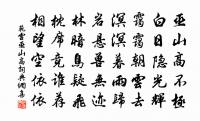 巫山高不極
白日隱光輝
靄靄朝雲去
溟溟暮雨歸
岩懸獸無迹
林暗鳥疑飛
枕席竟誰薦
相望空依依
范雲巫山高詞典網書